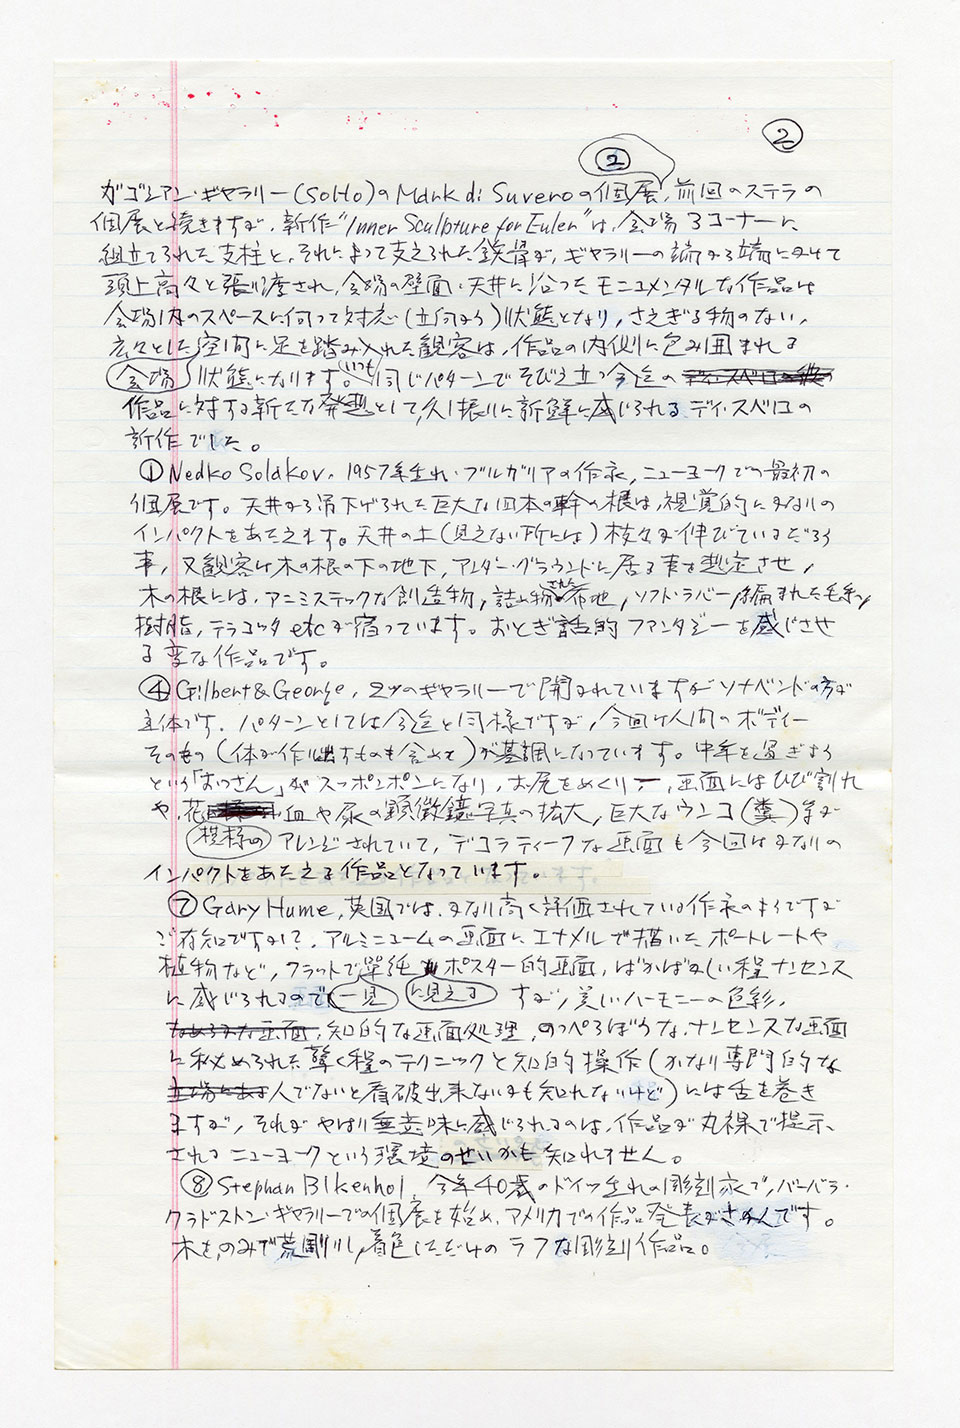 ②
②
ガゴシアン・ギャラリー(SoHo)のMark di Suveroの個展、前回のステラの
個展と続きますが、新作"Inner Sculpture for Euler"は、会場3コーナーに
組立てられた支柱と、それによって支えられた鉄骨が、ギャラリーの端から端にかけて
頭上高々と張り渡され、会場の壁面・天井に沿ったモニュメンタルな作品は
会場内のスペースに向って対応(立向かう)状態となり、さえぎる物のない、
広々とした空間に足を踏み入れた観客は、作品の内側に包み囲まれる
会場 状態になります。いつも同じパターンでそびえ立つ今迄の
作品に対する新たな発想として、久し振りに新鮮に感じられるディ・スベロの
新作でした。
①Nedko Solakov、1957年生れ・ブルガリアの作家、ニューヨークでの最初の
個展です。天井から吊下げられた巨大な四本の幹の根は、視覚的にかなりの
インパクトをあたえます。天井の上(見えない所には)枝々が伸びているだろう
事、又観客は木の根の下の地下、アンダー・グラウンドに居る事を想定させ、
木の根には、アニミスティックな創造物、詰め物された布地、ソフト・ラバー、編まれた毛糸、
樹脂、テラコッタetcが宿っています。おとぎ話的ファンタジーを感じさせ
る変な作品です。
④Gilbert & George、2つのギャラリーで開かれていますがソナベンドの方が
主体です。パターンとしては今迄と同様ですが、今回は人間のボディー
そのもの(体が作り出すものも含めて)が基調になっています。中年を過ぎよう
という「おっさん」がスッポンポンになり、お尻をめくり、画面にはひび割れ
や、花 血や尿の顕微鏡写真の拡大、巨大なウンコ(糞)等が
模様の アレンジされていて、デコラティーフな画面も今回はかなりの
インパクトをあたえる作品となっています。
⑦Gary Hume、英国では、かなり高く評価されている作家のようですが
ご存知ですか?、アルミニュームの画面にエナメルで描いたポートレートや
植物など、フラットで単純 ポスター的画面、ばかばかしい程ナンセンス
に感じられるので 一見 に見える すが、美しいハーモニーの色彩、
なめらかな画面、知的な画面処理、のっぺらぼうな、ナンセンスな画面
に秘められた驚く程のテクニックと知的操作(かなり専門的な
立場にある人でないと看破出来ないかも知れないけど)には舌を巻き
ますが、それがやはり無意味に感じられるのは、作品が丸裸で提示
されるニューヨークという環境のせいかも知れません。
⑧Stephan Blkenhol、今年40歳のドイツ生れの彫刻家で、バーバラ・
グラドストン・ギャラリーでの個展を始め、アメリカでの作品発表がさかんです。
木を、のみで荒削りし、着色しただけのラフな彫刻作品。